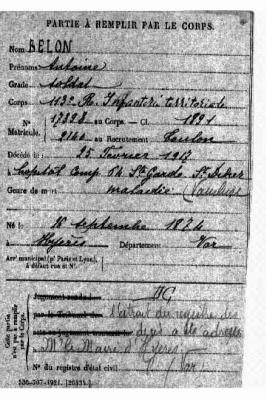 PARTIE À REMPLIR PAR LE CORPS.
Nom BELON
Prénoms Antoine
Grade Soldat
Corps 113e R. Infanterie territoriale
N° 17328 au Corps. — Cl. 1891
Matricule. 2144 au Recrutement Toulon
Décédé le 25 février 1917
à hôpital
Genre de mort maladie (Vaucluse
Né le septembre 1874
à Hyères Département Var
Arrt municipal (pr Paris et Lyon),
à défaut rue et N°.
Cette partie
n'est pas à remplir
par le Corps.
Jugement rendu le
par le Tribunal de l'extrait du registre des
acte ou jugement transcrit le décès a été adressé
à Mr le Maire d'Hyères
N° du registre d'état civil Var)
536-707-1921. [26434.]